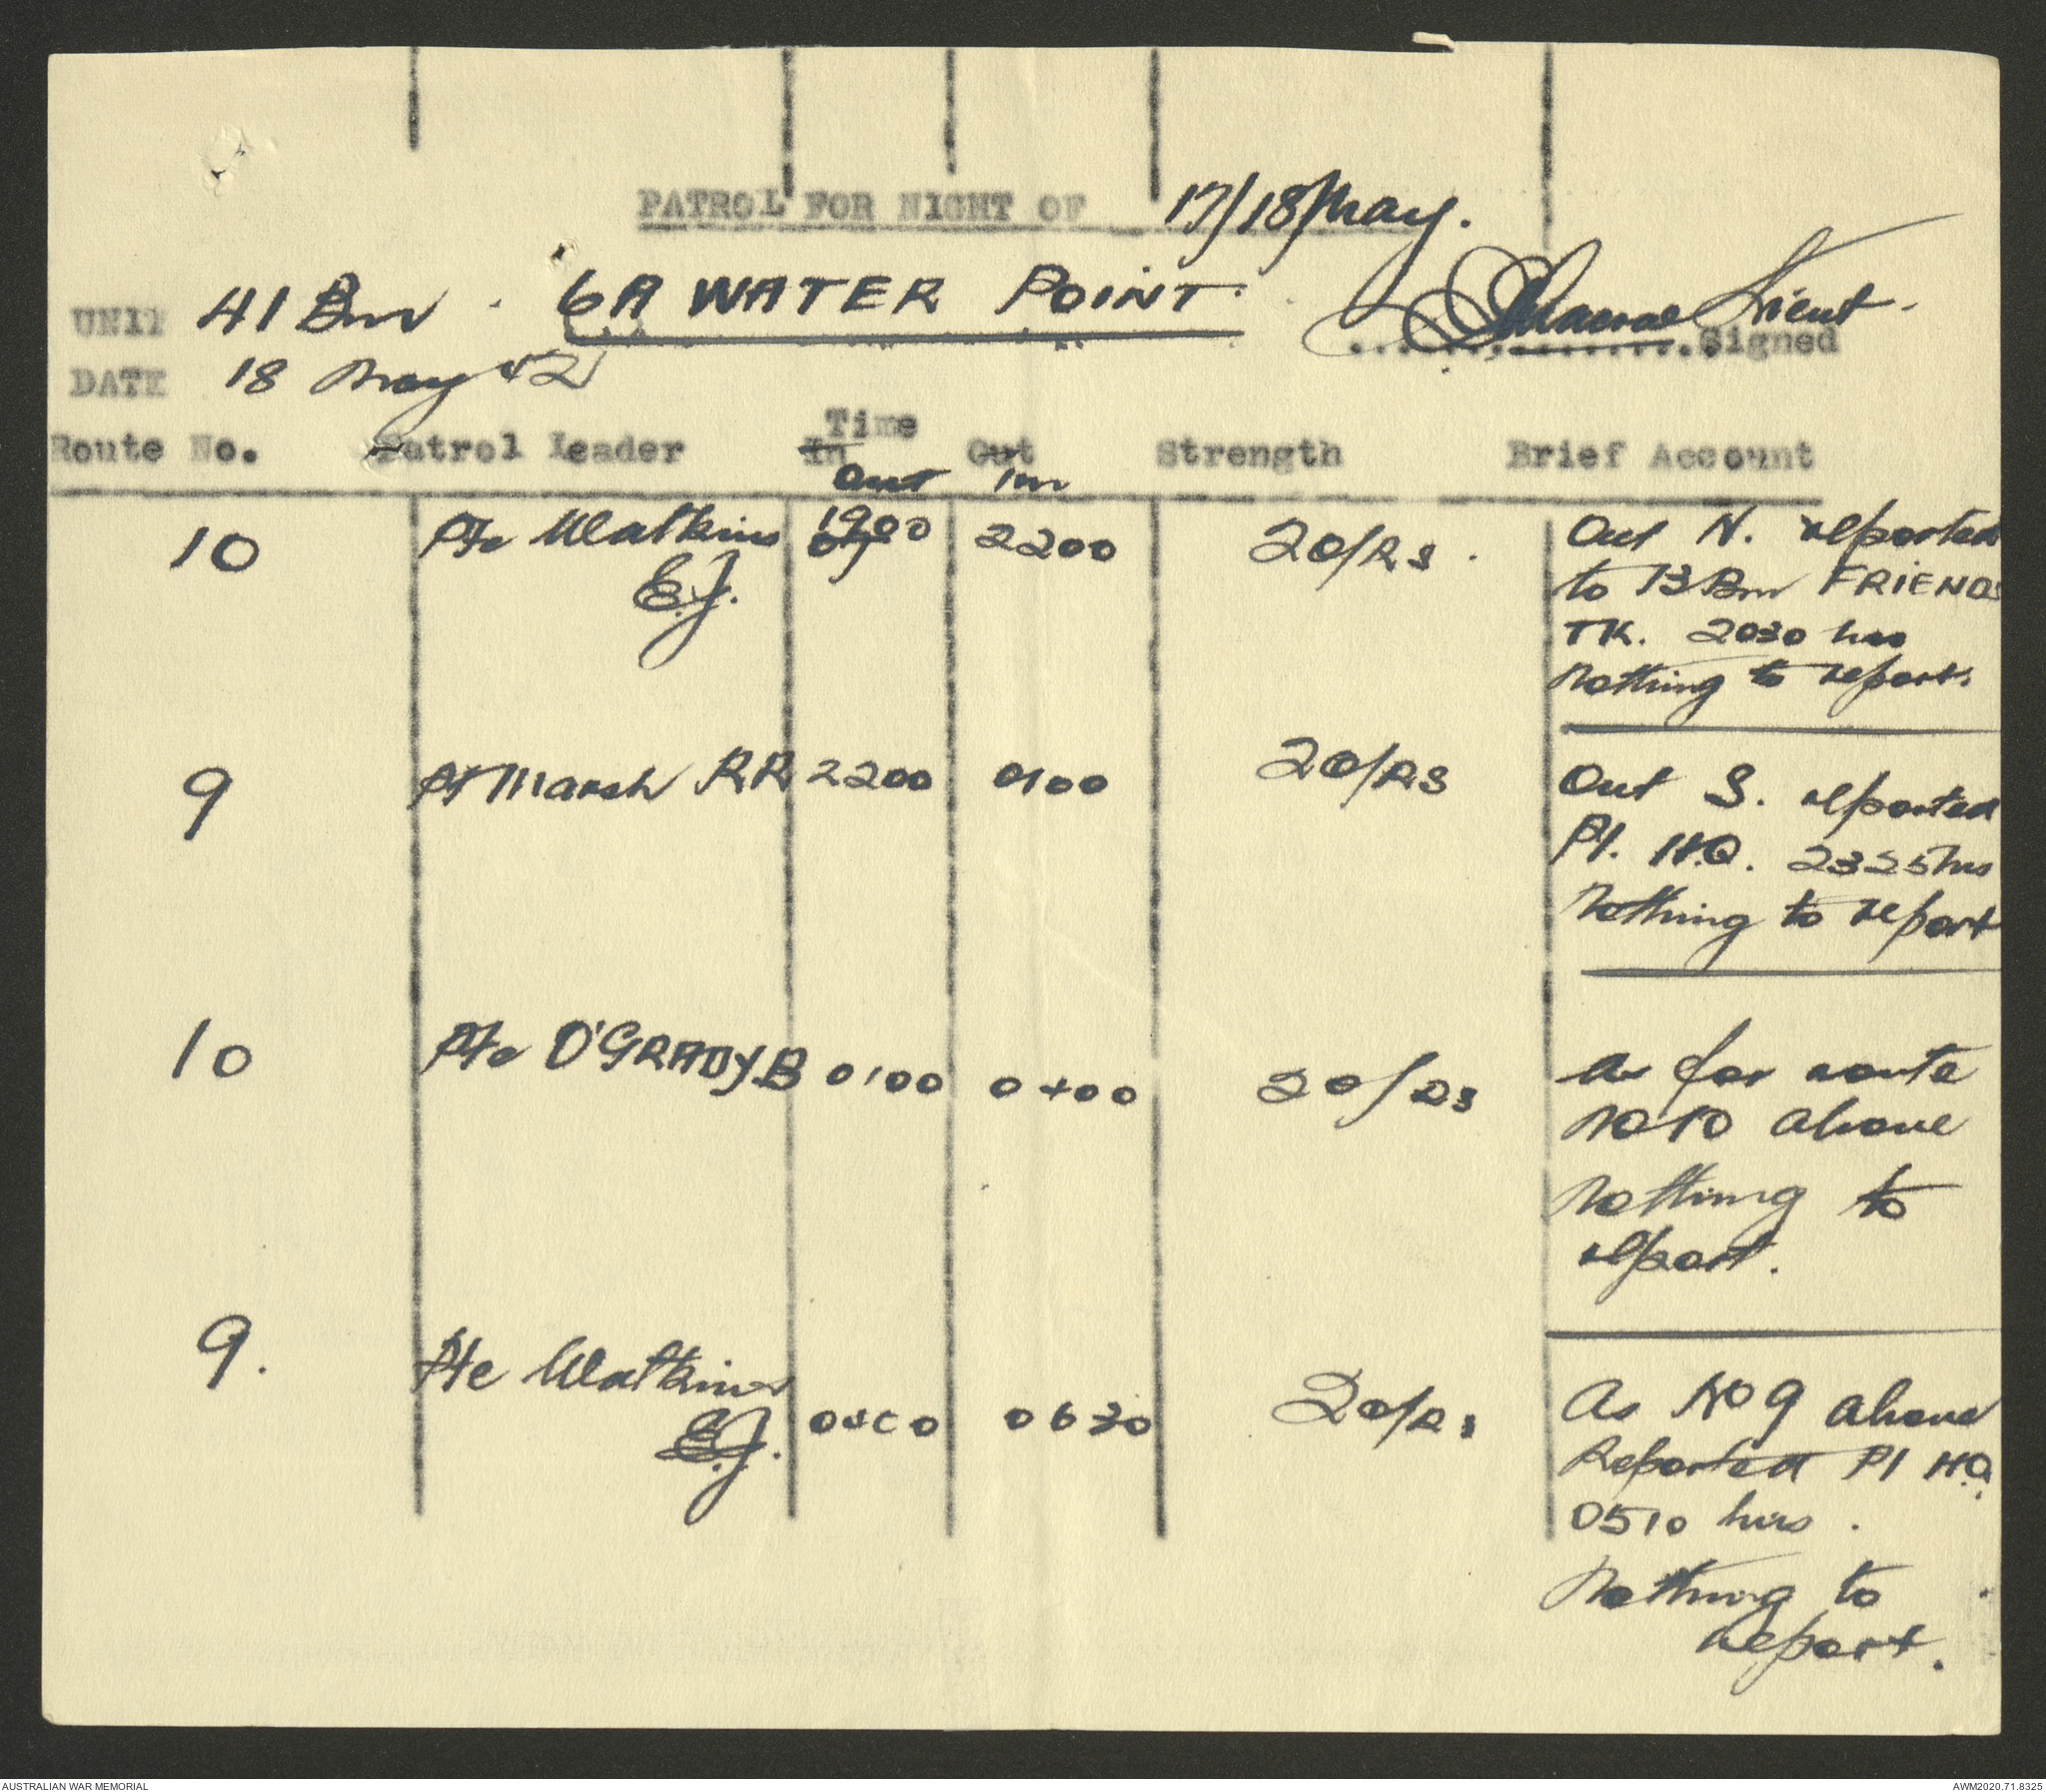 PATROL FOR NIGHT OF 17/18 May.
UNIT 41 Bn . 6A WATER POINT. Lieut.
Signed
DATE 18 May 42
Time
Route No. Patrol Leader In Out Strength Brief Account
Out In
10 Pte Watkins 1900 2200 20/Rs . Out N. reported
E.J. to 13 Bn FRIENDS
TK. 2030 hrs
Nothing to report.
9 Pt Marsh RR 2200 0100 20/Rs Out S. reported
Pl. H.Q. 2325 hrs
Nothing to report
10 Pte O'GRADY.B 0100 0400 20/Rs as for route
No 10 above
Nothing to
report.
9. Pte Watkins
E.J. 0400 0630 20/Rs As No 9 above
Reported Pl HQ.
0510 hrs .
Nothing to
report.
AUSTRALIAN WAR MEMORIAL AWM2020.71.8325